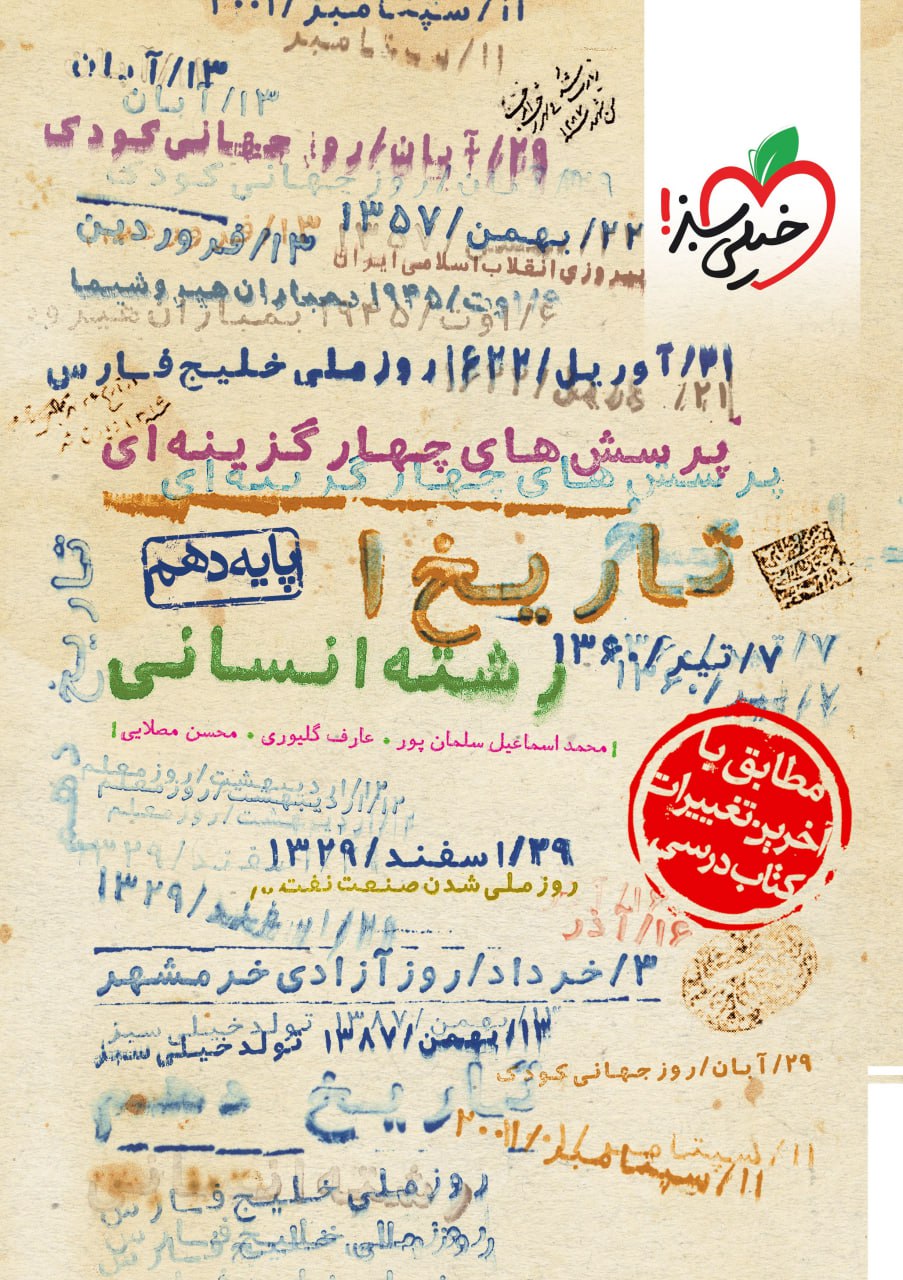 ۱۱/سپتامبر/۲۰۰۱
۱۱/سپتامبر
۱۳/آبان
۱۳/آبان
۲۹/آبان/روز جهانی کودک
۲۹/آبان/روز جهانی کودک
خیلی سبز!
۲۲/بهمن/۱۳۵۷
۱۳/فروردین
پیروزی انقلاب اسلامی ایران
۶/اوت/۱۹۴۵ بمباران هیروشیما
۶/اوت/۱۹۴۵ بمباران هیرو
۳۱/آوریل/۱۶۲۲ روز ملی خلیج فارس
پرسش های چهار گزینه ای
پرسش های چهار گزینه ای
تاریخ ۱
پایه دهم
رشته انسانی
۷/تیر/۱۳۶۰
۷/تیر/۱۳۶۰
محمد اسماعیل سلمان پور • عارف گلیوری • محسن مصلایی
مطابق با
آخرین تغییرات
کتاب درسی
تاریخ دهم
۱۲/اردیبهشت/روز معلم
۱۲/اردیبهشت/روز معلم
۱۲/اردیبهشت/روز معلم
۲۹/اسفند/۱۳۲۹
روز ملی شدن صنعت نفت
۱۶/آذر
۳/خرداد/روز آزادی خرمشهر
۱۳/بهمن/۱۳۸۷ تولد خیلی سبز
۱۳/بهمن/۱۳۸۷ تولد خیلی سبز
۲۹/آبان/روز جهانی کودک
تاریخ دهم
۱۱/سپتامبر/۲۰۰۱
۱۱/سپتامبر/۲۰۰۱
رشته انسانی
روز ملی خلیج فارس
روز ملی خلیج فارس